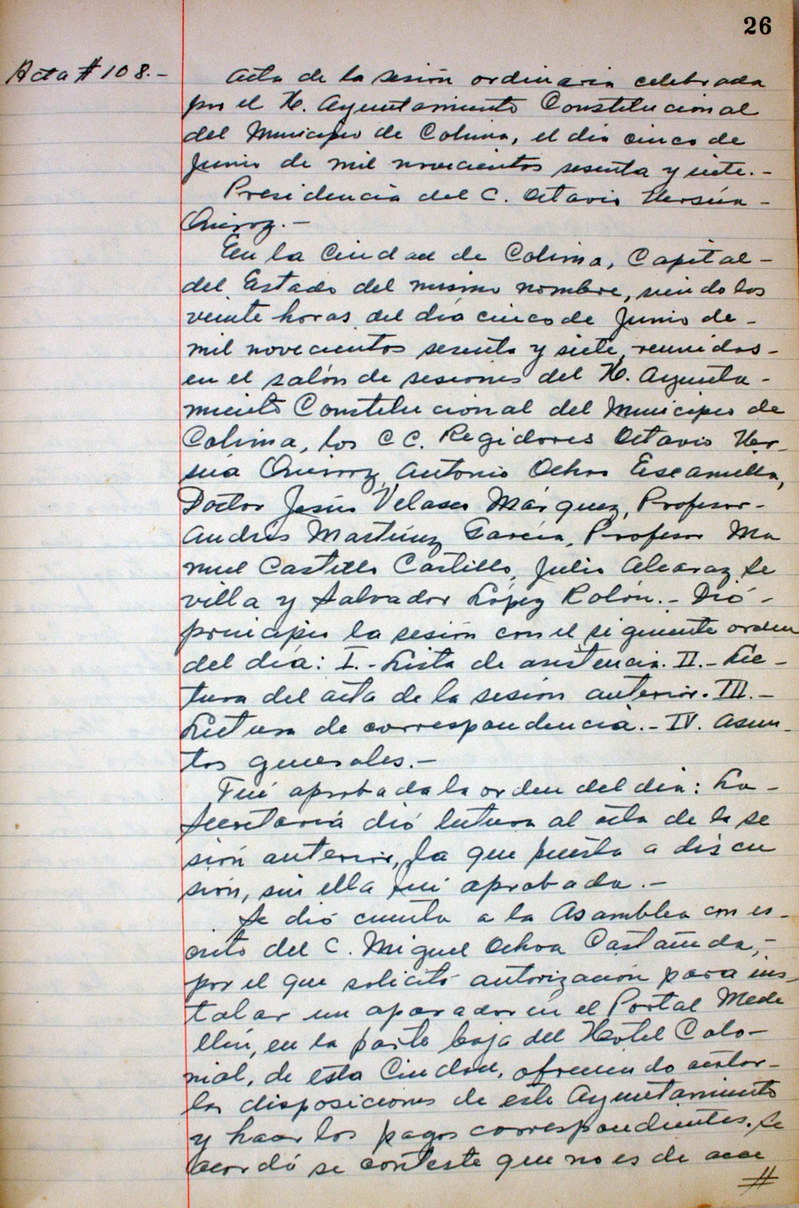 26
Acta # 108.-
Acta de la sesión ordinaria celebrada
por el H. Ayuntamiento Constitucional
del Municipio de Colima, el día cinco de
Junio de mil novecientos sesenta y siete.-
Presidencia del C. Octavio Ursúa -
Quiroz.-
En la Ciudad de Colima, Capital -
del Estado del mismo nombre, siendo las
veinte horas del día cinco de Junio de -
mil novecientos sesenta y siete, reunidos -
en el salón de sesiones del H. Ayunta -
miento Constitucional del Municipio de
Colima, los CC. Regidores Octavio Ur-
súa Quiroz, Antonio Ochoa Escamilla,
Doctor Jesús Velasco Márquez, Profesor -
Andrés Martínez García, Profesor Ma
nuel Castillo Castillo, Julio Alcaraz Se
villa y Salvador López Rolón.- Dió -
principio la sesión con el siguiente orden
del día: I.- Lista de asistencia. II.- Lec -
tura del acta de la sesión anterior. III.-
Lectura de correspondencia.- IV. Asun-
tos generales.-
Fué aprobada la orden del día: La -
Secretaría dió lectura al acta de la se
sión anterior, la que puesta a discu
sión, sin ella fué aprobada.-
Se dió cuenta a la Asamblea con es-
crito del C. Miguel Ochoa Castañeda,-
por el que solicitó autorización para ins-
talar un aparador en el Portal Mede
llín, en la parte baja del Hotel Colo-
nial, de esta Ciudad, ofreciendo acatar -
las disposiciones de este Ayuntamiento
y hacer los pagos correspondientes. Se
acordó se conteste que no es de acce
//